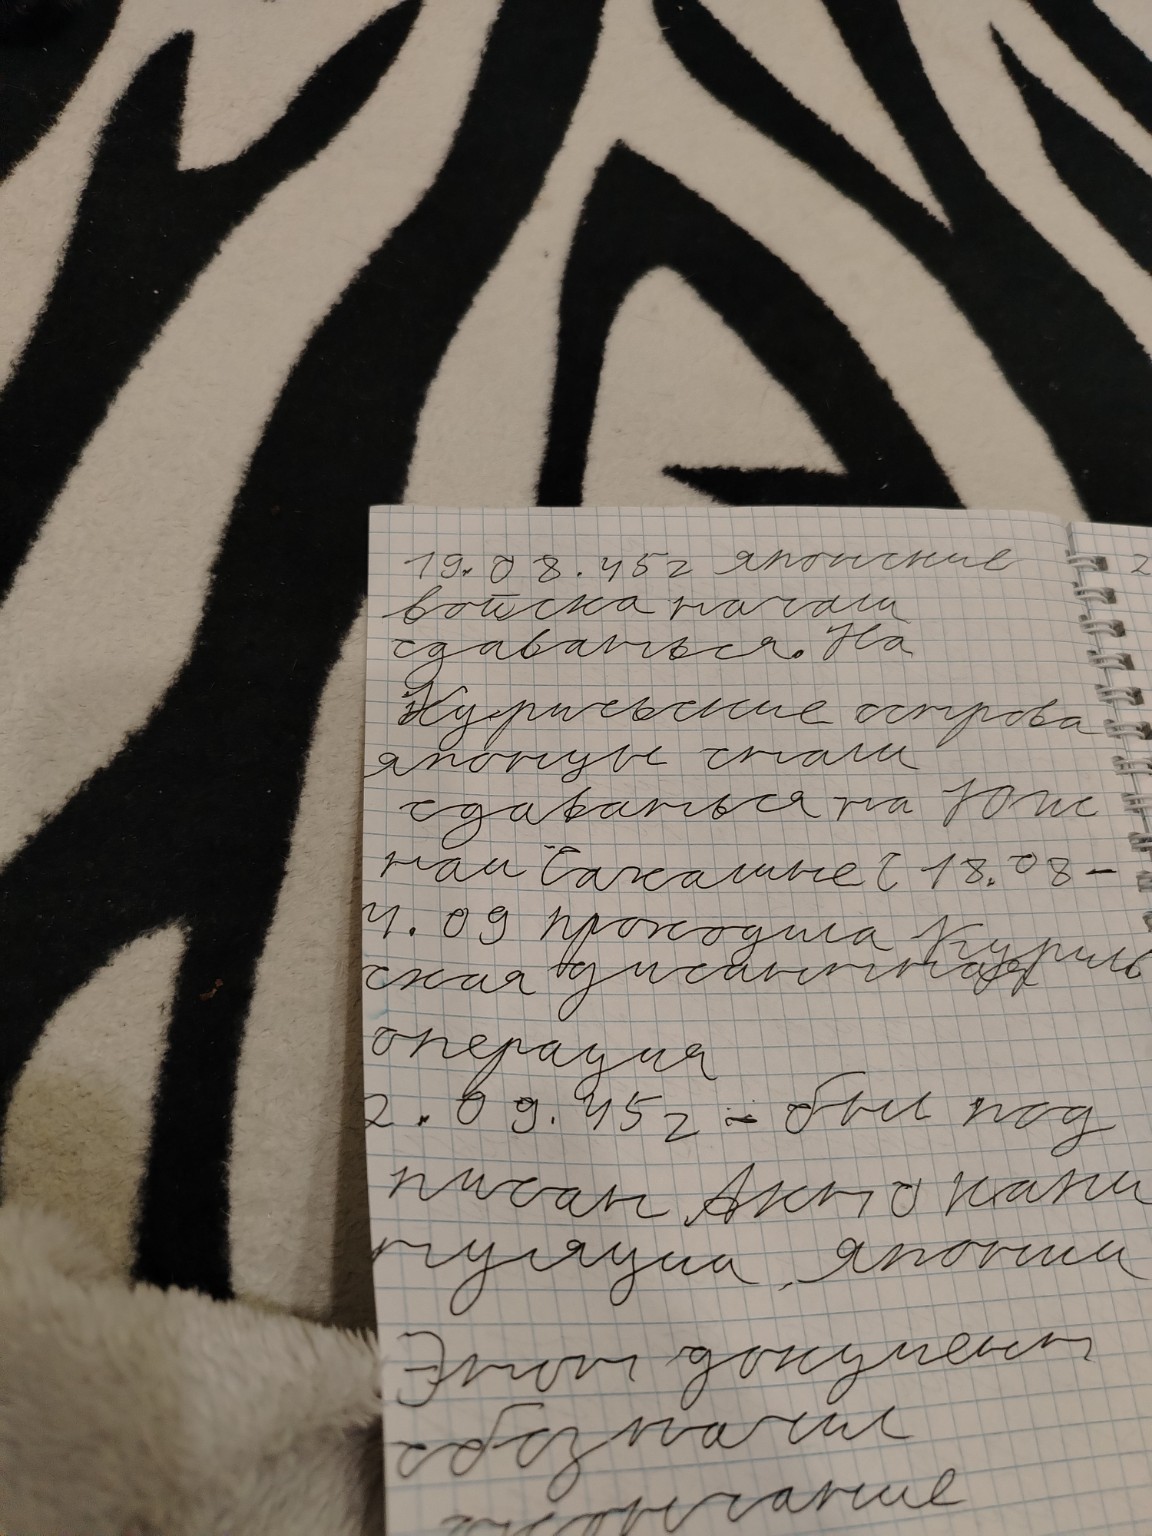 19.08.45г японские
войска начали
сдаваться. На
Курильские острова
японцы стали
сдаваться на Юж
ном Сахалине (18.08-
4.09 проходила Куриль
ская дисантная
операция
2.09.45г - был под
писан Акт о капи
туляции Японии
Этот документ
обозначил
окончание
2